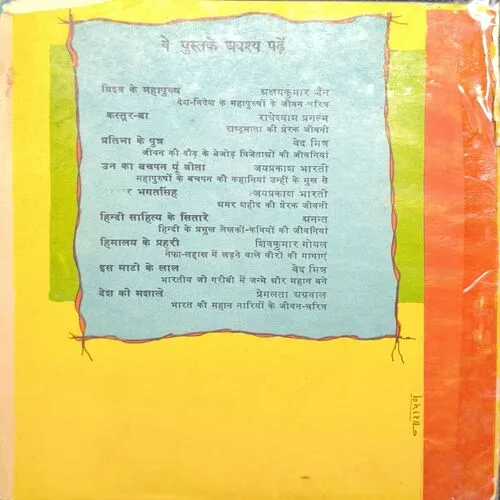 ये पुस्तकें अवश्य पढ़ें
विश्व के महापुरुष अक्षयकुमार जैन
देश-विदेश के महापुरुषों के जीवन चरित्र
कस्तूर-बा राधेश्याम प्रगल्भ
राष्ट्रमाता की प्रेरक जीवनी
प्रतिभा के पुत्र वेद मित्र
जीवन की दौड़ के बेजोड़ विजेताओं की जीवनियां
उन का बचपन यूं बीता जयप्रकाश भारती
महापुरुषों के बचपन की कहानियां उन्हीं के मुख से
भगतसिंह जयप्रकाश भारती
अमर शहीद की प्रेरक जीवनी
हिन्दी साहित्य के सितारे अनन्त
हिन्दी के प्रमुख लेखकों-कवियों की जीवनियां
हिमालय के प्रहरी शिवकुमार गोयल
नेफा-लद्दाख में लड़ने वाले वीरों की गाथाएं
इस माटी के लाल वेद मित्र
भारतीय जो गरीबी में जन्मे और महान बने
देश की मशालें प्रेमलता अग्रवाल
भारत की महान नारियों के जीवन-चरित्र